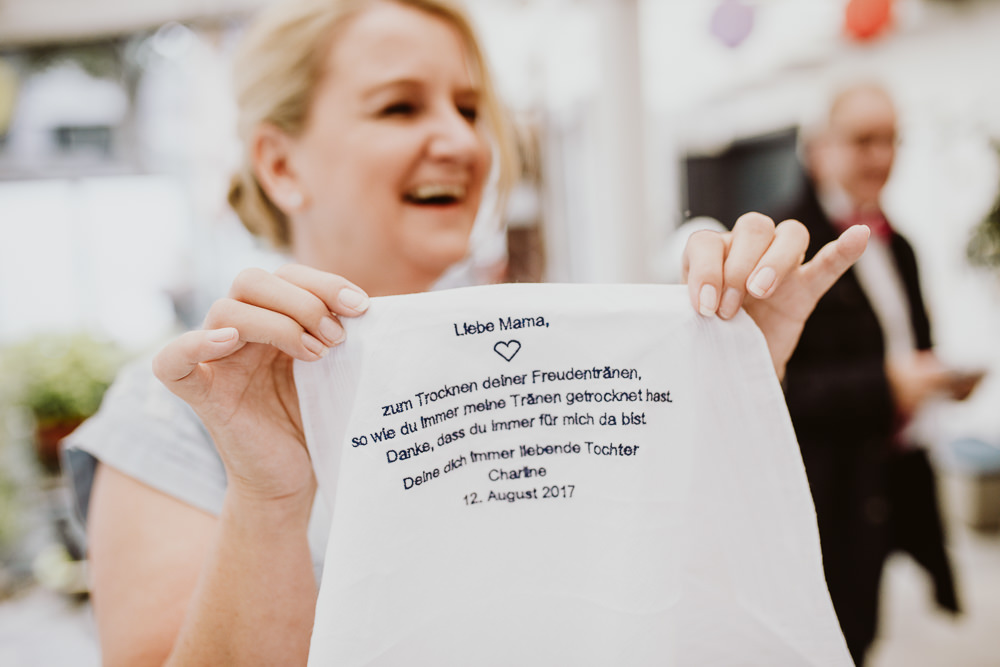 Liebe Mama,
zum Trocknen deiner Freudentränen,
so wie du immer meine Tränen getrocknet hast.
Danke, dass du immer für mich da bist
Deine dich immer liebende Tochter
Charline
12. August 2017